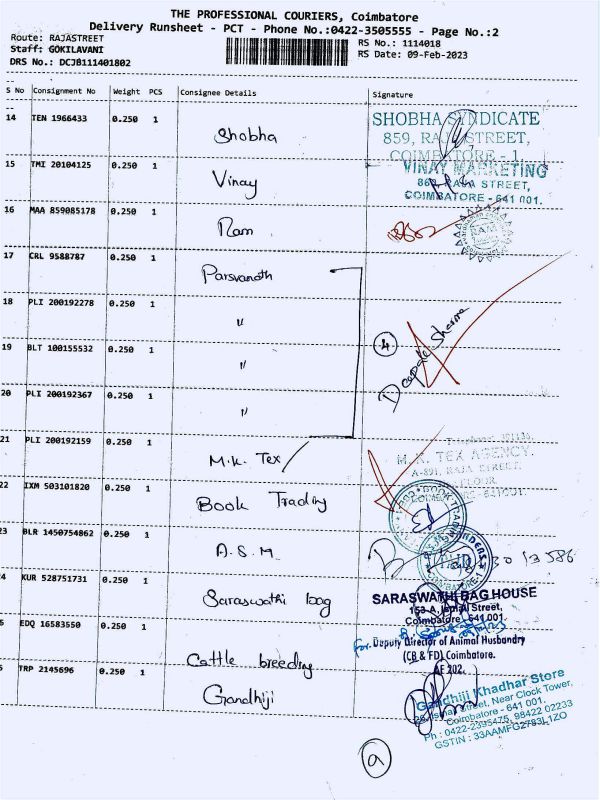 THE PROFESSIONAL COURIERS, Coimbatore
Delivery Runsheet - PCT - Phone No.:0422-3505555 - Page No.:2
Route: RAJASTREET
Staff: GOKILAVANI
DRS No.: DCJB111401802
RS No.: 1114018
RS Date: 09-Feb-2023
S No Consignment No Weight PCS Consignee Details Signature
14 TEN 1966433 0.250 1 Shobha
SHOBHA SYNDICATE
859, RAJA STREET,
COIMBATORE - 1
15 TMI 20104125 0.250 1 Vinay
VINAY MARKETING
RAJA STREET,
COIMBATORE - 641 001.
16 MAA 859085178 0.250 1 Ram
RAM
17 CRL 9588787 0.250 1 Parsvanath
18 PLI 200192278 0.250 1 "
19 BLT 100155532 0.250 1 "
4
Deepak Sharma
20 PLI 200192367 0.250 1 "
21 PLI 200192159 0.250 1 M.K. Tex
M.K. TEX AGENCY.
A-891, RAJA STREET,
FLOOR,
641001.
22 IXM 503101820 0.250 1 Book Trading
23 BLR 1450754862 0.250 1 A.S.M.
24 KUR 528751731 0.250 1 Saraswathi bag
SARASWATHI BAG HOUSE
153-A, Street,
Coimbatore - 641 001.
EDQ 16583550 0.250 1 Cattle breeding
for Deputy Director of Animal Husbandry
(CB & FD) Coimbatore.
TRP 2145696 0.250 1 Gandhiji
Gandhiji Khadhar Store
Street, Near Clock Tower,
Coimbatore - 641 001.
Ph : 0422-2395475, 98422 02233
GSTIN : 33AAMFG2783L1ZO
a